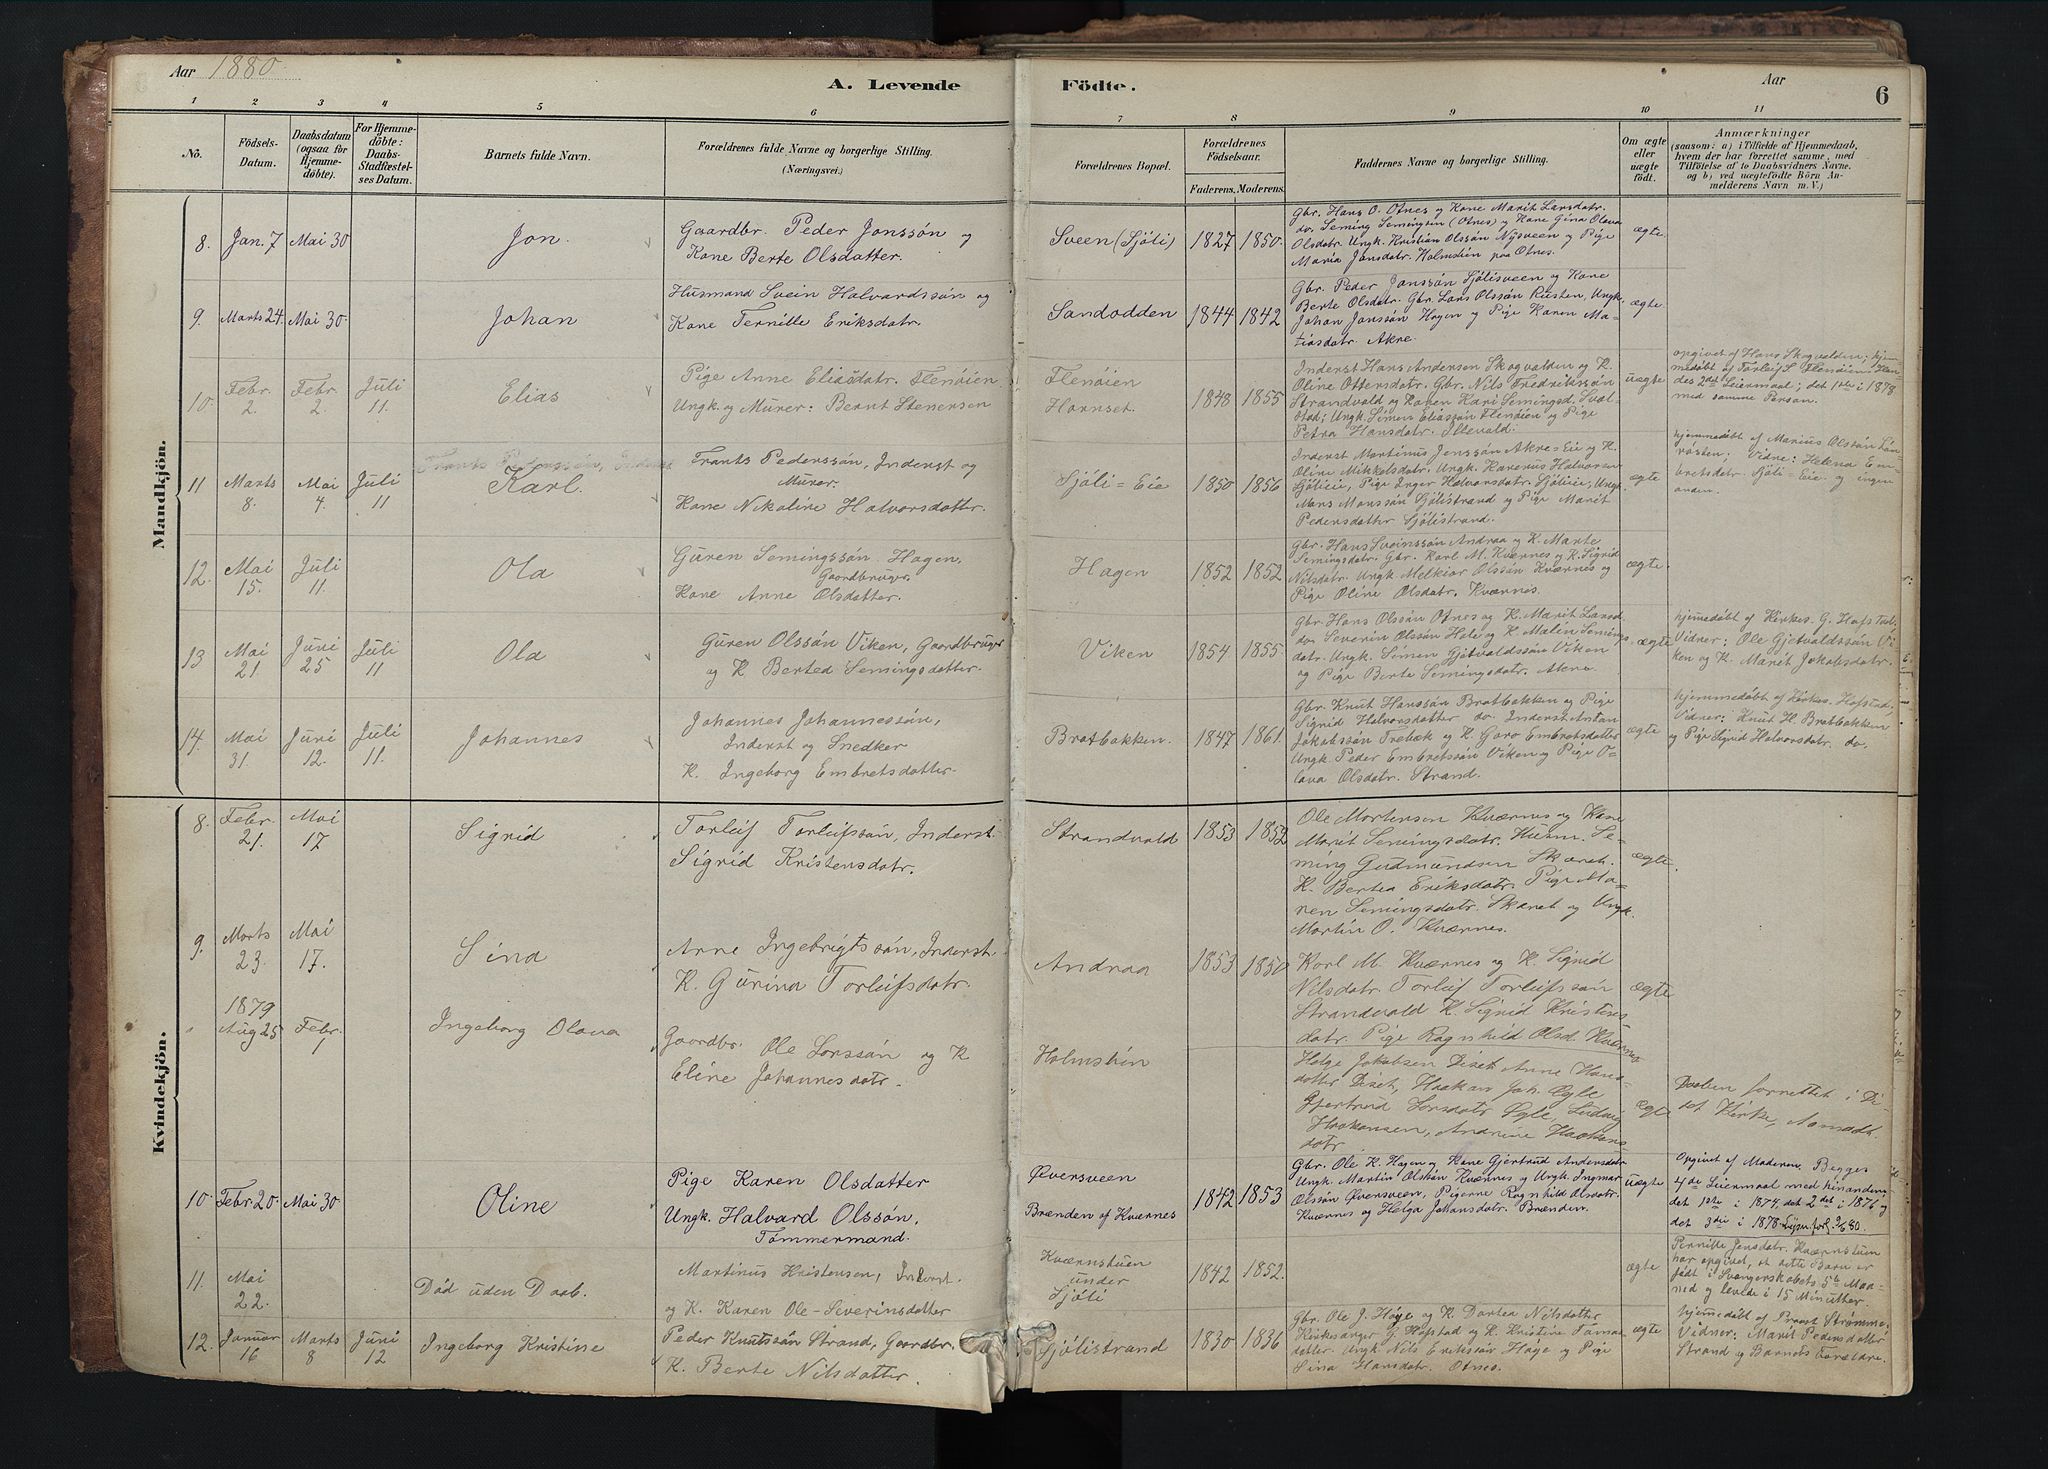 Aar 1880
A. Levende Födte.
Aar
6
1 2 3 4 5 6 7 8 9 10 11
No.
Födsels-Datum.
Daabsdatum (ogsaa for Hjemme-döbte).
For Hjemme-döbte: Daabs-Stadfæstel-ses Datum.
Barnets fulde Navn.
Forældrenes fulde Navne og borgerlige Stilling.
(Næringsvei.)
Forældrenes Bopæl.
Forældrenes Födselsaar.
Faderens. Moderens.
Faddernes Navne og borgerlige Stilling.
Om ægte eller uægte födt.
Anmærkninger
(saasom: a) i Tilfælde af Hjemmedaab,
hvem der har forrettet samme, med
Tilföielse af to Daabsvidners Navne,
og b) ved uægtefödte Börn An-
melderens Navn m. V.)
Mandkjön.
8. Jan. 7 Mai 30 Jon.
Gaardbr. Peder Jonssön og
Kone Berte Olsdatter.
Sveen (Sjöli) 1827 1850.
Gbr. Hans O. Otnes og Kone Marit Larsdatr.
do. Seming Semingsen (Otnes) og Kone Gina Olava
Olsdatr. Ungk. Kristian Olssön Nysveen og Pige
Maria Jonsdatr. Holmsöien paa Otnes.
ægte
9. Marts 24. Mai 30. Johan
Husmand Svein Halvardssön og
Kone Pernille Eriksdatr.
Sandodden 1844 1842
Gbr. Peder Jonssön Sjölisveen og Kone
Berte Olsdatr. Gbr. Lars Olssön Rusten, Ungk.
Johan Jonssön Hagen og Pige Karen Ma-
tiasdatr. Akre.
ægte
10. Febr. 2. Febr. 2 Juli 11. Elias
Pige Anne Eliasdatr. Flenöien
Ungk. og Murer: Bernt Stenersen
Flenöien
Hornset. 1848 1855
Inderst Hans Andersen Skogvolden og K.
Oline Ottersdatr. Gbr. Nils Fredrikssön
Strandvold og Konen Kari Semingsd.
stad; Ungk. Simen Eliassön Flenöien og Pige
Petra Hansdatr.
uægte
opgivet af Hans Skogvolden; hjem-
medöbt af Torleif S. Flenöien
des 2det Leiermaal; det 1ste i 1878
med samme Person.
11 Marts 8. Mai 4. Juli 11 Karl.
Frants Pederssön, Inderst og
Murer.
Kone Nikoline Halvorsdatter.
Sjöli-Eie 1850 1856
Inderst Martinus Jenssön Akre-Eie og K.
Oline Mikkelsdatr. Ungk. Karenus Halvorsen
Sjölieie, Pige Inger Halvorsdatr. Sjölieie, Ungk.
Mons Monssön Sjölistrand og Pige Marit
Pedersdatter Sjölistrand.
ægte
hjemmedöbt af Marius Olssön
Vidne: Helena Em-
bretsdatr. Sjöli-Eie og ingen
anden.
12. Mai 15. Juli 11. Ola
Guren Semingssön Hagen,
Gaardbruger
Kone Anne Olsdatter.
Hagen 1852 1852
Gbr. Hans Sveinssön Andraa og K. Marte
Semingsdatr. Gbr. Karl M. Kværnes og K. Sigrid
Nilsdatr. Ungk. Melkior Olssön Kværnes og
Pige Oline Olsdatr. Kværnes.
ægte
13 Mai 21. Juni 25 Juli 11 Ola
Guren Olssön Viken, Gaardbruger
og K. Berted Semingsdatter.
Viken 1854 1855.
Gbr. Hans Olssön Otnes og K. Marit Larsd.
do. Severin Olssön Hole og K. Malin Semings-
datr. Ungk. Simen Gjetvaldssön Viken
og Pige Berte Semingsdatr. Akre.
ægte
hjemmedöbt af Kirkes. G. Hofstad,
Vidner: Ole Gjetvaldssön Vi-
ken og K. Marit Jakobsdatr.
14. Mai 31. Juni 12. Juli 11. Johannes
Johannes Johannessön,
Inderst og Snedker
K. Ingeborg Embretsdatter.
Bratbakken. 1847 1861.
Gbr. Knut Hanssön Bratbakken og Pige
Sigrid Halvorsdatter do. Inderst Antan
Jakobssön Trebæk og K. Goro Embretsdatter
Ungk. Peder Embretssön Viken og Pige O-
lava Olsdatr. Strand.
ægte
hjemmedöbt af Kirkes. Hofstad,
Vidner: Knut H. Bratbakken
og Pige Sigrid Halvorsdatr. do.
Kvindekjön.
8. Febr. 21. Mai 17 Sigrid
Torleif Torleifssön, Inderst
Sigrid Kristensdatr.
Strandvold 1853 1852
Ole Mortensen Kværnes og Kone
Marit Semingsdatr. Husm. Se-
ming Gudmundsen Skaret.
K. Bertea Eriksdatr. Pige Ma-
ren Semingsdatr. Skaret og Ungk.
Martin O. Kværnes.
ægte
9. Marts 23. Mai 17. Sina
Arne Ingebrigtssön, Inderst
K. Gurina Torleifsdatr.
Andraa 1853 1850
Karl M. Kværnes og K. Sigrid
Nilsdatr. Torleif Torleifssön
Strandvold K. Sigrid Kristens-
datr. Pige Ragnhild Olsd. Kværnes
ægte
" 1879 Aug 25 Febr. 1 Ingeborg Olava
Gaardbr. Ole Larssön og K
Eline Johannesdatr.
Holmsöien
Helge Jakobsen Diset Anne Hans-
datter Diset, Haakan Joh. Ögle
Gjertrud Larsdatr Ögle, Ludvig
Haakansen, Andrine Haakens
datr
ægte
Daaben forrettet i Di-
set Kirke, Aamodt.
10. Febr 20. Mai 30. Oline
Pige Karen Olsdatter
Ungk. Halvard Olssön,
Tömmermand.
Översveen
Brænden af Kværnes 1842 1853
Gbr. Ole K. Hagen og Kone Gjertrud Andersdatr.
Ungk. Martin Olssön Kværnes og Ungk. Ingmar
Olssön Översveen, Pigerne Ragnhild Olsdatr.
Kværnes og Helga Johansdatr. Brænden.
uægte
Opgivet af Moderen. Begges
4de Leiermaal med hinanden,
det 1ste i 1874, det 2det i 1876 og
det 3die i 1878
11. Mai 22. Död uden Daab.
Martinus Kristensen, Inderst.
og K. Karen Ole-Severinsdatter
Kværnstuen
under
Sjöli 1842 1852.
ægte
Pernille Jensdatr. Kværnstuen
har opgivet, at dette Barn er
födt i Svangerskabets 5te Maa-
ned og levede i 15 Minutter.
12. Januar 16 Marts 8 Juni 12 Ingeborg Kristine
Peder Knutssön Strand, Gaardbr.
K. Berte Nilsdatter.
Sjölistrand 1830 1836
Gbr. Ole J. Höge og K. Dortea Nilsdatter
Kirkesanger G. Hofstad og K. Kristine
datter. Ungk. Nils Erikssön Höge og Pige
Sina Hansdatr. Otnes.
ægte
hjemmedöbt af Provst Strömme.
Vidner: Marit Pedersdatter
Strand og Barnets Forældre.